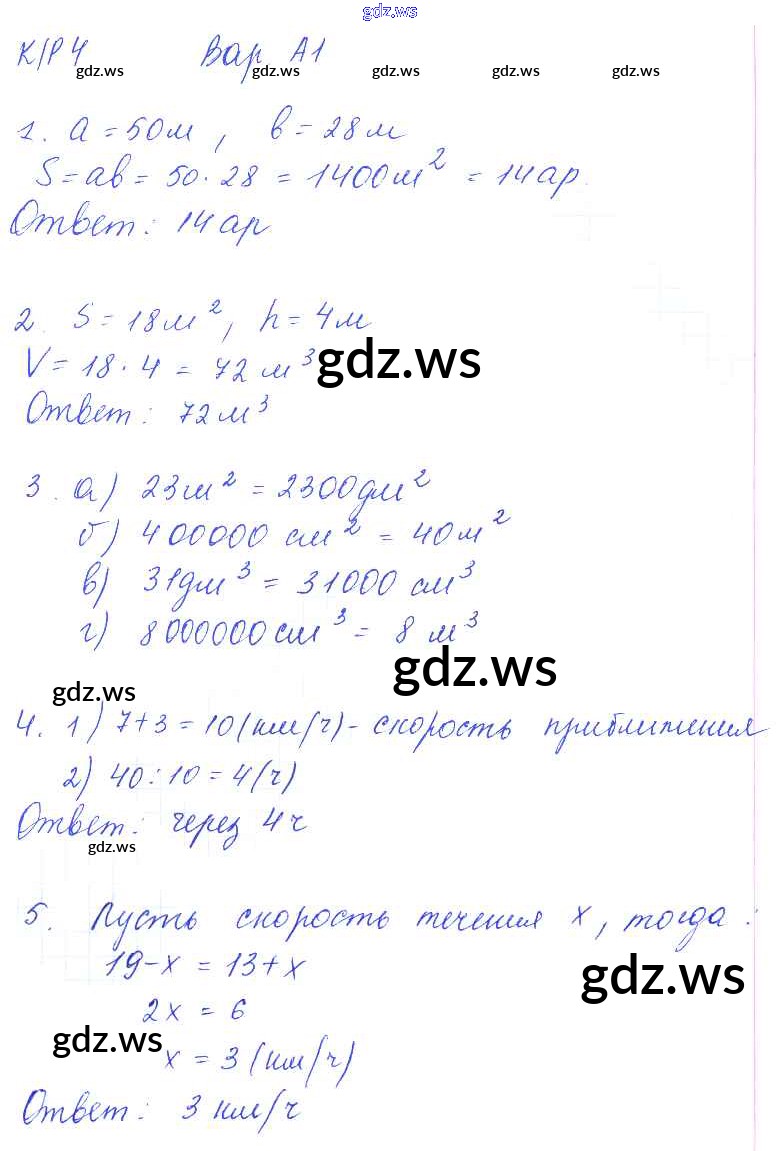 gdz.ws
К/Р 4 Вар А1
gdz.ws gdz.ws gdz.ws gdz.ws gdz.ws
1. a = 50м, b = 28м
S = ab = 50 · 28 = 1400м² = 14ар.
Ответ: 14ар
2. S = 18м², h = 4м
V = 18 · 4 = 72 м³
gdz.ws
Ответ: 72м³
3. а) 23м² = 2300дм²
б) 400000 см² = 40м²
в) 31дм³ = 31000 см³
г) 8000000см³ = 8 м³
gdz.ws
gdz.ws
4. 1) 7+3 = 10(км/ч) - скорость приближения
2) 40:10 = 4(ч)
Ответ: через 4ч
gdz.ws
5. Пусть скорость течения x, тогда:
19-x = 13+x
gdz.ws
2x = 6
gdz.ws
x = 3 (км/ч)
Ответ: 3 км/ч
gdz.ws